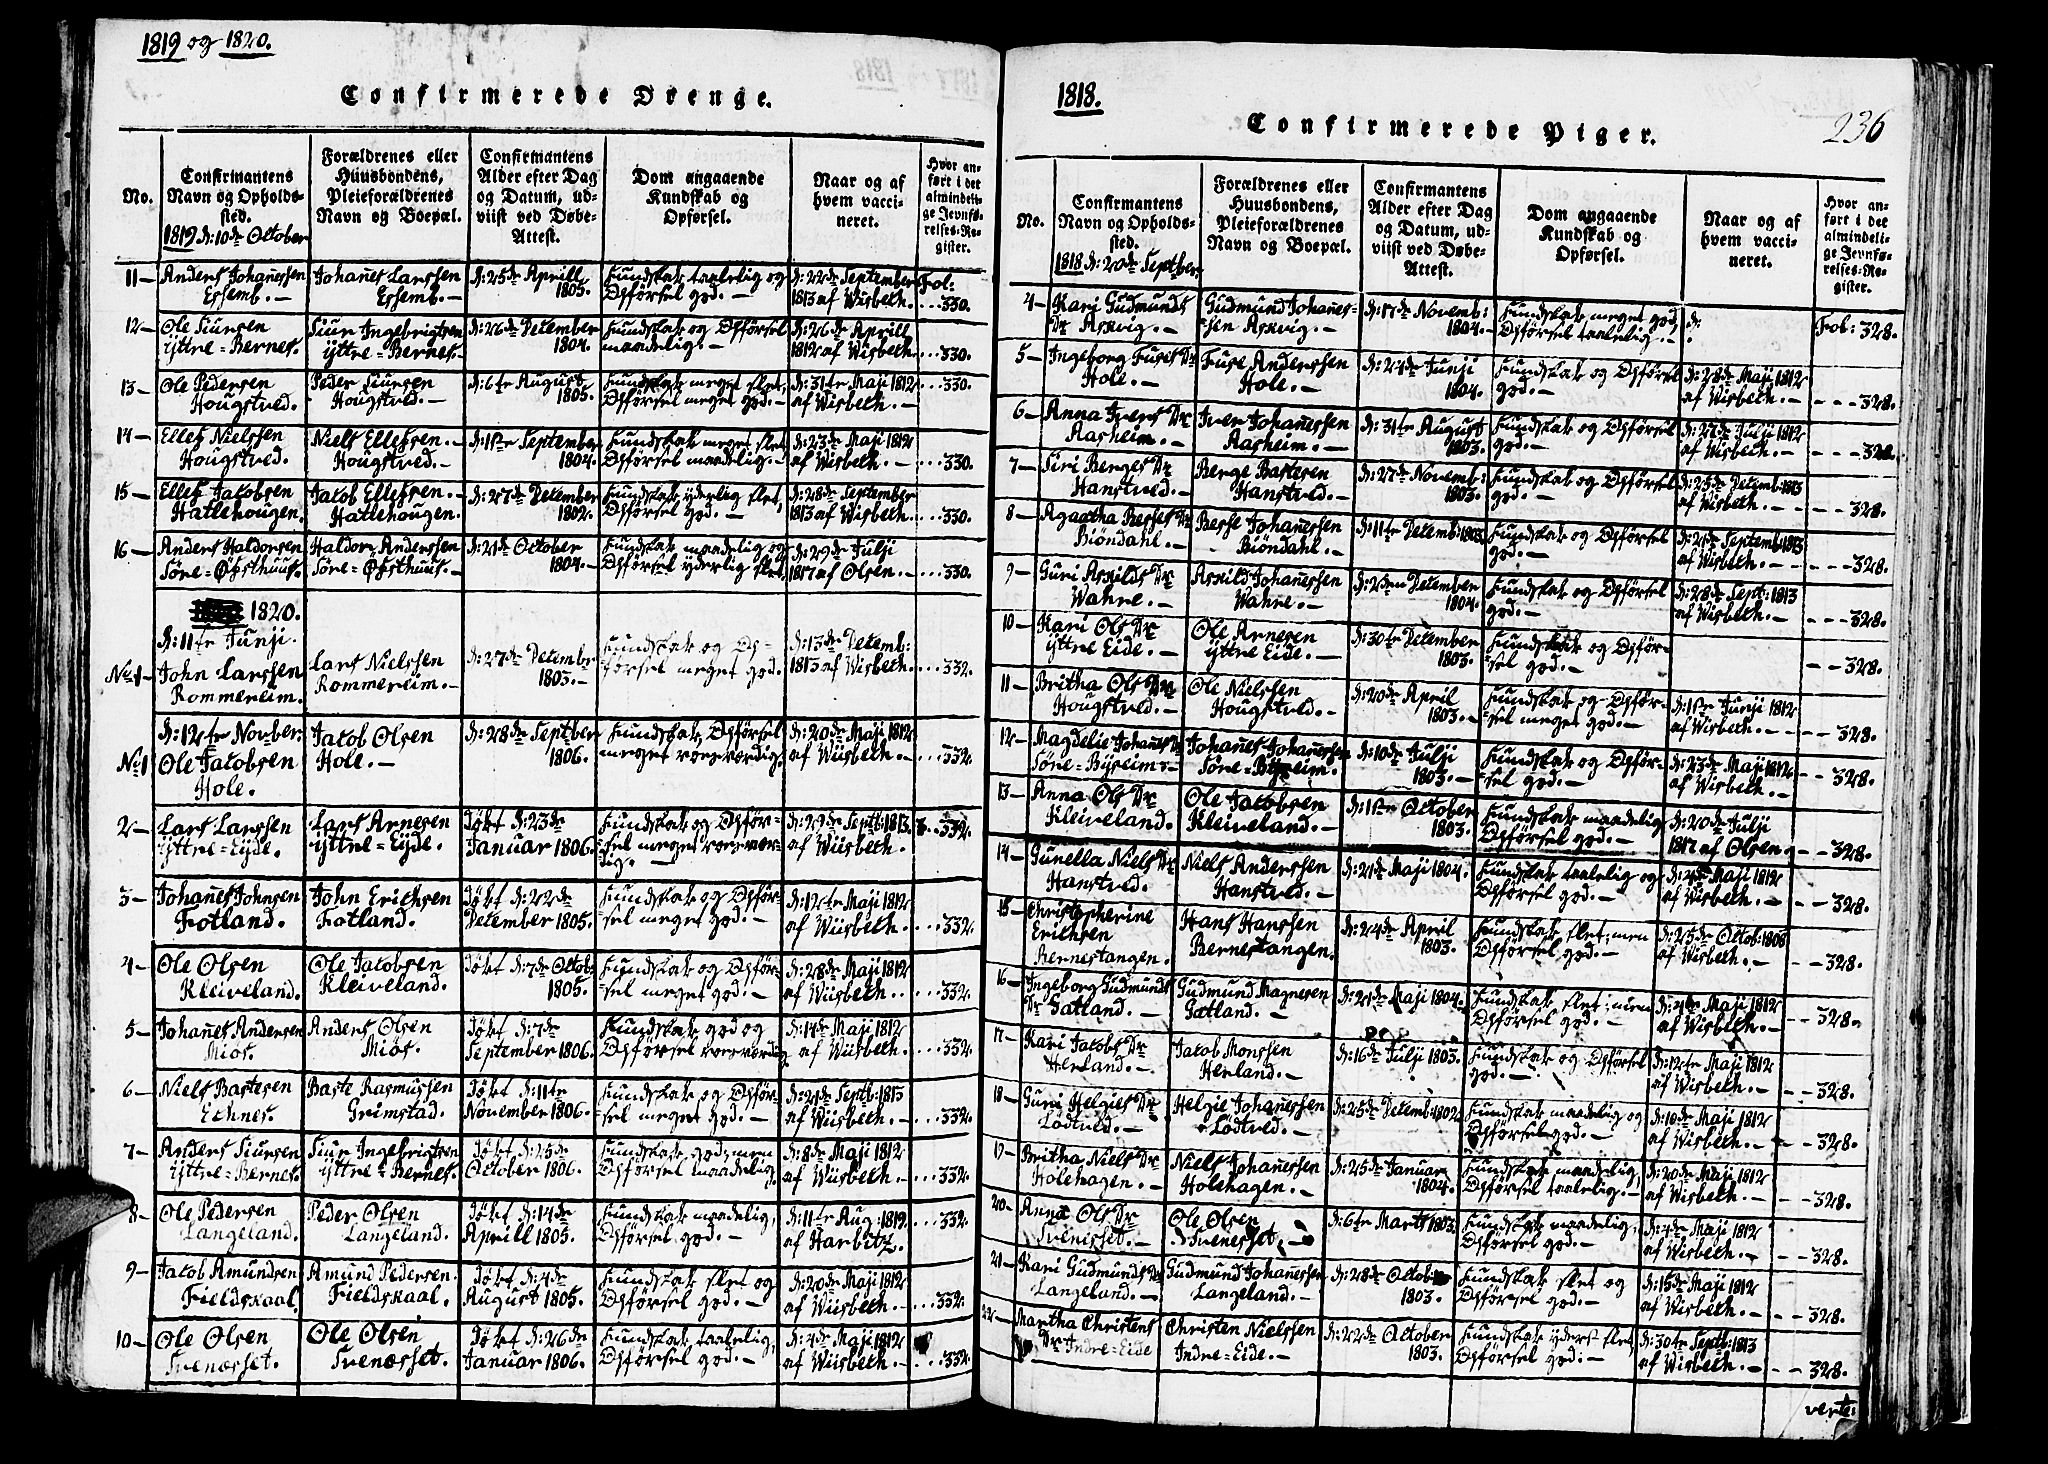 1819 og 1820.
Confirmerede Drenge.
No.
Confirmantens Navn og Opholds-sted.
Forældrenes eller Huusbondens, Pleieforældrenes Navn og Boepæl.
Confirmantens Alder efter Dag og Datum, ud-viist ved Døbe-Attest.
Dom angaaende Kundskab og Opførsel.
Naar og af hvem vacci-neret.
Hvor an-ført i det almindeli-ge Jevnfø-relses-Re-gister.
1819 d: 10de October
11 - Anders Johañessen Essemb. - Johañes Larssen Essemb. - d: 25de Aprill 1805. Kundskab taalelig og Opførsel god. - d: 22de September 1813 af Wisbech. Fol: 330.
12 - Ole Siursen Yttre=Bernes. Siur Ingebrigtsen Yttre=Bernes. - d: 26de December 1804. Kundskab og Opførsel maadelig. - d: 26de Aprill 1812 af Wisbech. 330.
13 - Ole Pedersen Hougstved. Peder Siursen Hougstved. - d: 6te August 1805. Kundskab meget slet, Opførsel meget god. - d: 31te Maji 1812 af Wisbech. - 330.
14 - Ellef Nielssen Hougstved. Niels Ellefsen. - Hougstved. - d: 1ste September 1804. Kundskab meget slet, Opførsel maadelig. - d: 23de Maji 1812 af Wisbech. - 330.
15 - Ellef Jacobsen Hatlehougen. Jacob Ellefsen. - Hatlehougen. - d: 27de December 1802. Kundskab yderlig slet, Opførsel god. - d: 28de September 1813 af Wisbech. 330.
16 - Anders Haldorsen Søre=Østhuus. Haldor Anderssen Søre=Østhuus. - d: 21de October 1804. - Kundskab maadelig og Opførsel yderlig slet, d: 29de Julji 1817 af Olsen. 330.
1820.
d: 11te Junji.
No 1 - John Larssen Rommereim. Lars Nielssen Rommereim. - d: 27de December 1803. - Kundskab og Opførsel meget god. d: 13de Decemb: 1813 af Wisbech. 332.
d: 12te Novber:
No 1 Ole Jacobsen Hole. Jacob Olsen Hole. - d: 28de Septber 1806. Kundskab, Opførsel meget roesværdig. d: 20de Maji 1812 af Wiisbech. - 332.
2 - Lars Larssen Yttre=Eyde. Lars Arnesen Yttre=Eyde. Døbt d: 23de Januar 1806. Kundskab og Opfør-sel meget roesvær-dig. - d: 29de Septb: 1813. af Wiisbech. 332.
3 - Johañes Johnsen Fotland. John Erichsen Fotland. Døbt d: 22de December 1805. Kundskab og Opfør-sel meget god. - d: 12te Maji 1812 af Wiisbech. 332.
4 - Ole Olsen Kleiveland. Ole Jacobsen Kleiveland. Døbt d: 7de Octob: 1805. Kundskab og Opfør-sel meget god. - d: 28de Maji 1812 af Wiisbech. 332.
5 - Johañes Andersen Miøs. Anders Olsen Miøs. Døbt d: 7de September 1806. Kundskab god og Opførsel roesværdig d: 14de Maji 1812 af Wiisbech. 332.
6 - Niels Bastesen Echnes. Baste Rasmussen Grimstad. Døbt d: 11te November 1806. Kundskab og Opfør-sel meget god. - d: 21de Septb: 1813 af Wiisbech. 332.
7 - Anders Siursen Yttre=Bernes. Siur Ingebrigtsen Yttre=Bernes. Døbt d: 25de October 1806. Kundskab god; men Opførsel maadelig. d: 8de Maji 1812 af Wiisbech. 332.
8 - Ole Pedersen Langeland. Peder Olsen Langeland. Døbt d: 14de Aprill 1805. Kundskab maadelig, Opførsel god. - d: 11te Aug: 1812. af Harbitz. 332.
9 - Jacob Amundsen Fieldskaal. Amund Pedersen. Fieldskaal. Døbt d: 4de August 1805. Kundskab slet og Opførsel god. - d: 20de Maji 1812 af Wiisbech. 332.
10 - Ole Olsen Svenæsset. Ole Olsen Svenæsset. Døbt d: 26de Januar 1806. Kundskab taalelig, Opførsel god. - d: 4de Maji 1812 af Wiisbech. 332.
1818.
236
Confirmerede Piger.
No.
Confirmantens Navn og Opholds-sted.
Forældrenes eller Huusbondens, Pleieforældrenes Navn og Boepæl.
Confirmantens Alder efter Dag og Datum, ud-viist ved Døbe-Attest.
Dom angaaende Kundskab og Opførsel.
Naar og af hvem vacci-neret.
Hvor an-ført i det almindeli-ge Jevnfø-relses-Re-gister.
1818 d: 20de Septber
4 - Kari Gudmunds Dr Askvig. - Gudmund Johañes-sen Askvig. - d: 17de Novemb: 1804. Kundskab meget god, Opførsel taalelig. - d: Fol: 328.
5 - Ingeborg Fuses Dr Hole. - Fuse Anderssen Hole. - d: 24de Junji 1804. Kundskab og Opførsel god. - d: 28de Maji 1812 af Wisbech. - 328.
6 - Anna Ivers Dr Aasheim. - Iver Johañessen Aasheim. - d: 31te August 1803. Kundskab og Opførsel god. - d: 27de Julji 1812 af Wisbech. - 328.
7 - Siri Berges Dr Hanstved. - Berge Bastesen Hanstved. - d: 27de Novemb: 1803. Kundskab og Opførsel god. - d: 25de Decemb: 1813 af Wisbech. - 328.
8 - Agatha Besses Dr Biöndahl. - Besse Johañessen Biöndahl. - d: 11te Decemb: 1803. Kundskab og Opførsel god. - d: 21de Septemb: 1813 af Wisbech. - 328.
9 - Guri Askilds Dr Wahne. - Askild Johañessen Wahne. - d: 23de December 1804. Kundskab og Opførsel god. - d: 28de Sept: 1813 af Wisbech. - 328.
10 - Kari Ols Dr Yttre Eide. - Ole Arnesen Yttre Eide. - d: 30te December 1803. Kundskab og Opfør-sel god. - 328.
11 - Britha Ols Dr Hougstved. - Ole Nielssen Hougstved. - d: 20de April 1803. - Kundskab og Opfør-sel meget god. - d: 1ste Junji 1812 af Wisbech. - 328.
12 - Magdelie Johañes Dr Søre=Byseim. - Johañes Johañessen Søre=Byseim. d: 10de Julji 1803. - Kundskab og Opfør-sel god. - d: 23de Maji 1812 af Wisbech. - 328.
13 - Anna Ols Dr Kleiveland. Ole Jacobsen Kleiveland. - d: 1ste October 1803. - Kundskab maadelig, Opførsel god. - d: 20de Julji 1817 af Olsen. 328.
14 - Gunella Niels Dr Hanstved. - Niels Anderssen Hanstved. - d: 21de Maji 1804. Kundskab taalelig og Opførsel god. - d: 2de Maji 1812 af Wisbech. - 328.
15 - Christopherine Erichsen Bernestangen. Hans Hanssen Bernestangen. d: 24de April 1803. Kundskab slet; men Opførsel god. - d: 25de Octob: 1806 af Wisbech. 328.
16 - Ingeborg Gudmunds Dr Gatland. - Gudmund Magnesen Gatland. - d: 21de Maji 1804. Kundskab slet; men Opførsel god. - d: 4de Maji 1812 af Wisbech. - 328.
17 - Kari Jacobs Dr Herland. - Jacob Monssen Herland. - d: 16de Julji 1803. Kundskab og Opførsel god. - d: 12te Maji 1812 af Wisbech. - 328.
18 - Guri Helgies Dr Lødtved. - Helgie Johañessen Lødtved. - d: 25de Decemb: 1802. Kundskab maadelig og Opførsel god. - d: 18de Maji 1812 af Wisbech. - 328.
19 - Britha Niels Dr Holehagen. - Niels Johañessen Holehagen. - d: 25de Januar 1804. Kundskab maadelig, Opførsel taalelig. - d: 20de Maji 1812 af Wisbech. - 328.
20 - Anna Ols Dr Svenesset. - Ole Olsen Svenesset. - d: 6te Marts 1803. Kundskab maadelig, Opførsel god. - d: 4de Maji 1812 af Wisbech. - 328.
21 - Kari Gudmunds Dr Langeland. - Gudmund Johañessen Langeland. - d: 28de October 1803. Kundskab slet og Opførsel god. - d: 15de Maji 1812 af Wisbech. - 328.
22 - Martha Christens Dr Indre=Eide Christen Nielssen Indre=Eide. - d: 22de October 1803. Kundskab yderst slet, Opførsel god. - d: 30te Septb: 1813 af Wisbech. - 328.
verte: